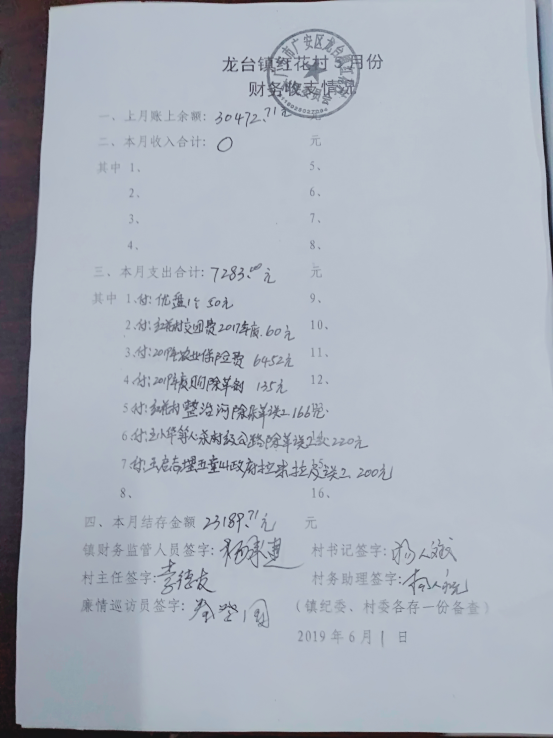 龙台镇红花村5月份
财务收支情况
一、上月账上余额: 30472.71元 元
二、本月收入合计: 0 元
其中 1、 5、
2、 6、
3、 7、
4、 8、
三、本月支出合计: 7283.00元 元
其中 1、付: 优盘1个 50元 9、
2、付: 红花村交团费2017年度 60元 10、
3、付: 2019年农业保险费 6452元 11、
4、付: 2019年度购除草剂 135元 12、
5、付: 红花村整治河除杂草误工166元
6、付: 王小华等人杀村级公路除草误工款220元
7、付: 王启态埋五童山政府拉来拉皮误工 200元
8、 16、
四、本月结存金额 23189.71元 元
镇财务监管人员签字: 村书记签字:
村主任签字: 李德友 村务助理签字:
廉情巡访员签字: 秦登国 (镇纪委、村委各存一份备查)
2019年6月1日